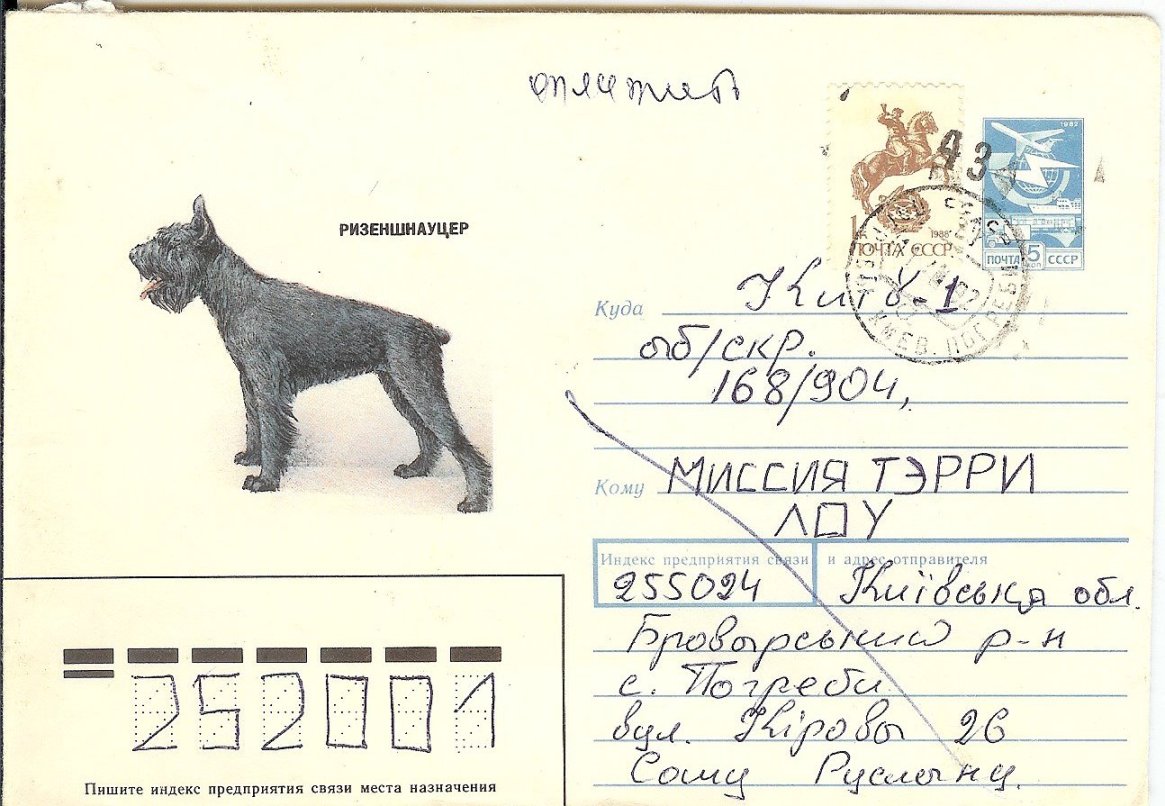 РИЗЕНШНАУЦЕР
1 к 1988
ПОЧТА СССР
43
1982
ПОЧТА 5 КОП СССР
КИЕВ.
Куда Київ-1
аб/скр.
168/904,
Кому МИССИЯ ТЭРРИ
ЛОУ
Индекс предприятия связи и адрес отправителя
255024 Київська обл.
Броварський р-н
с. Погреби
вул. Кірова 26
252001
Пишите индекс предприятия связи места назначения